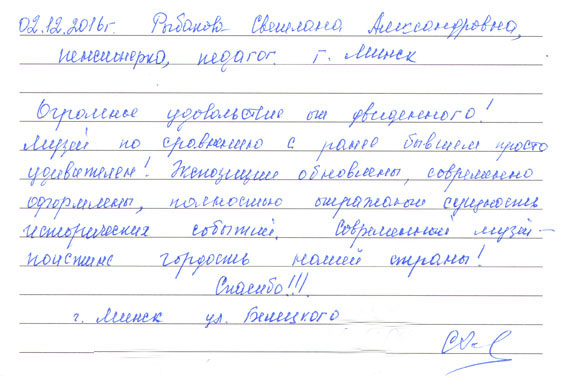 02.12.2016г. Рыбакова Светлана Александровна,
пенсионерка, педагог. г. Минск
Огромное удовольствие от увиденного!
Музей по сравнению с ранее бывшем просто
удивителен! Экспозиции обновлены, современно
оформлены, полностью отражают сущность
исторических событий. Современный музей –
поистине гордость нашей страны!
Спасибо!!!
г. Минск ул. Белецкого